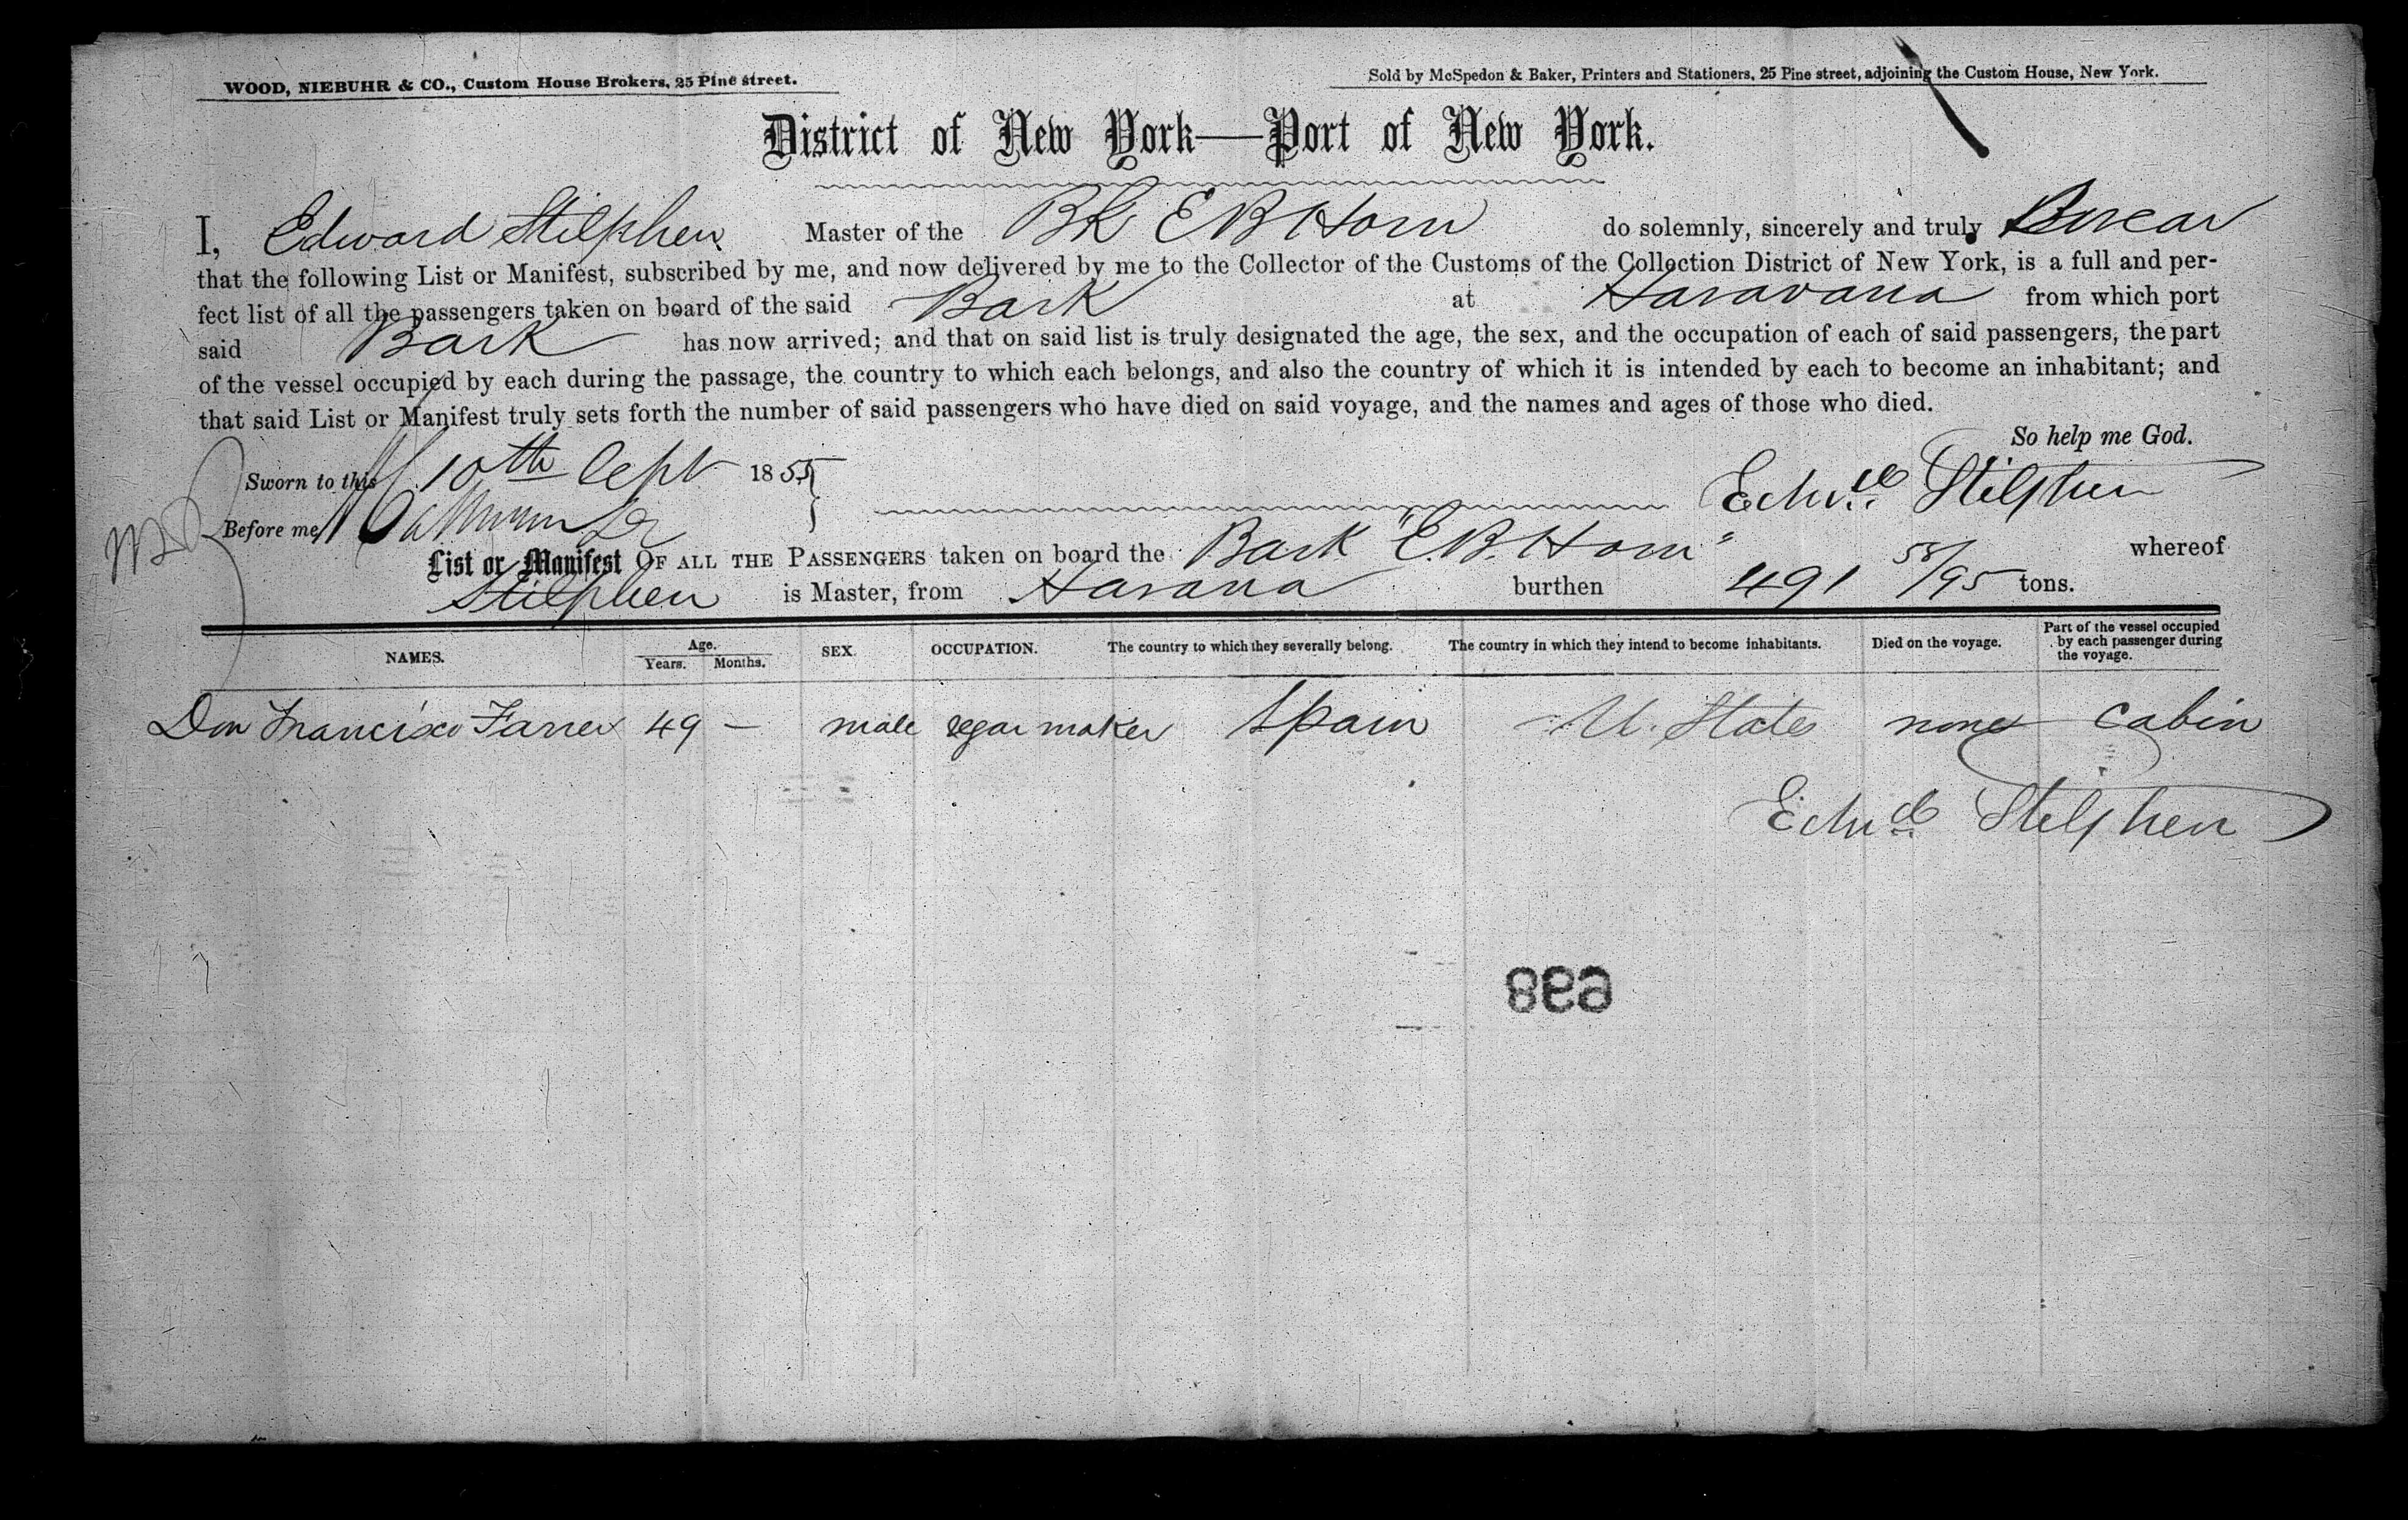 WOOD, NIEBUHR & CO., Custom House Brokers, 25 Pine street.
Sold by McSpedon & Baker, Printers and Stationers, 25 Pine street, adjoining the Custom House, New York.
District of New York—Port of New York.
I, Edward Stilphen Master of the Bk E B Horn do solemnly, sincerely and truly
that the following List or Manifest, subscribed by me, and now delivered by me to the Collector of the Customs of the Collection District of New York, is a full and per-
fect list of all the passengers taken on board of the said Bark at from which port
said Bark has now arrived; and that on said list is truly designated the age, the sex, and the occupation of each of said passengers, the part
of the vessel occupied by each during the passage, the country to which each belongs, and also the country of which it is intended by each to become an inhabitant; and
that said List or Manifest truly sets forth the number of said passengers who have died on said voyage, and the names and ages of those who died.
So help me God.
Sworn to this 10th Sept 1855
Edwd. Stilphen
Before me
List or Manifest OF ALL THE PASSENGERS taken on board the Bark "E. B. Horn" whereof
Stilphen is Master, from Havana burthen 491 58/95 tons.
NAMES. Age. Years. Months. SEX. OCCUPATION. The country to which they severally belong. The country in which they intend to become inhabitants. Died on the voyage. Part of the vessel occupied by each passenger during the voyage.
Don Francisco Farrer 49 — male segar maker Spain U. States none cabin
Edwd. Stilphen
698